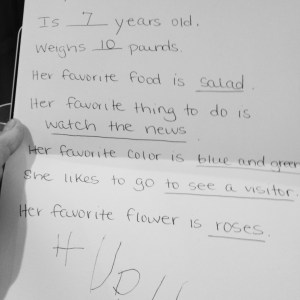 Is 7 years old.
Weighs 10 pounds.
Her favorite food is salad.
Her favorite thing to do is
watch the news
Her favorite color is blue and green
She likes to go to see a visitor.
Her favorite flower is roses.